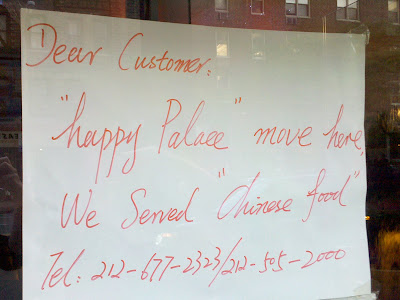 Dear Customer:
"happy Palace" move here,
We Served "Chinese food"
Tel: 212-677-2323/212-505-2000